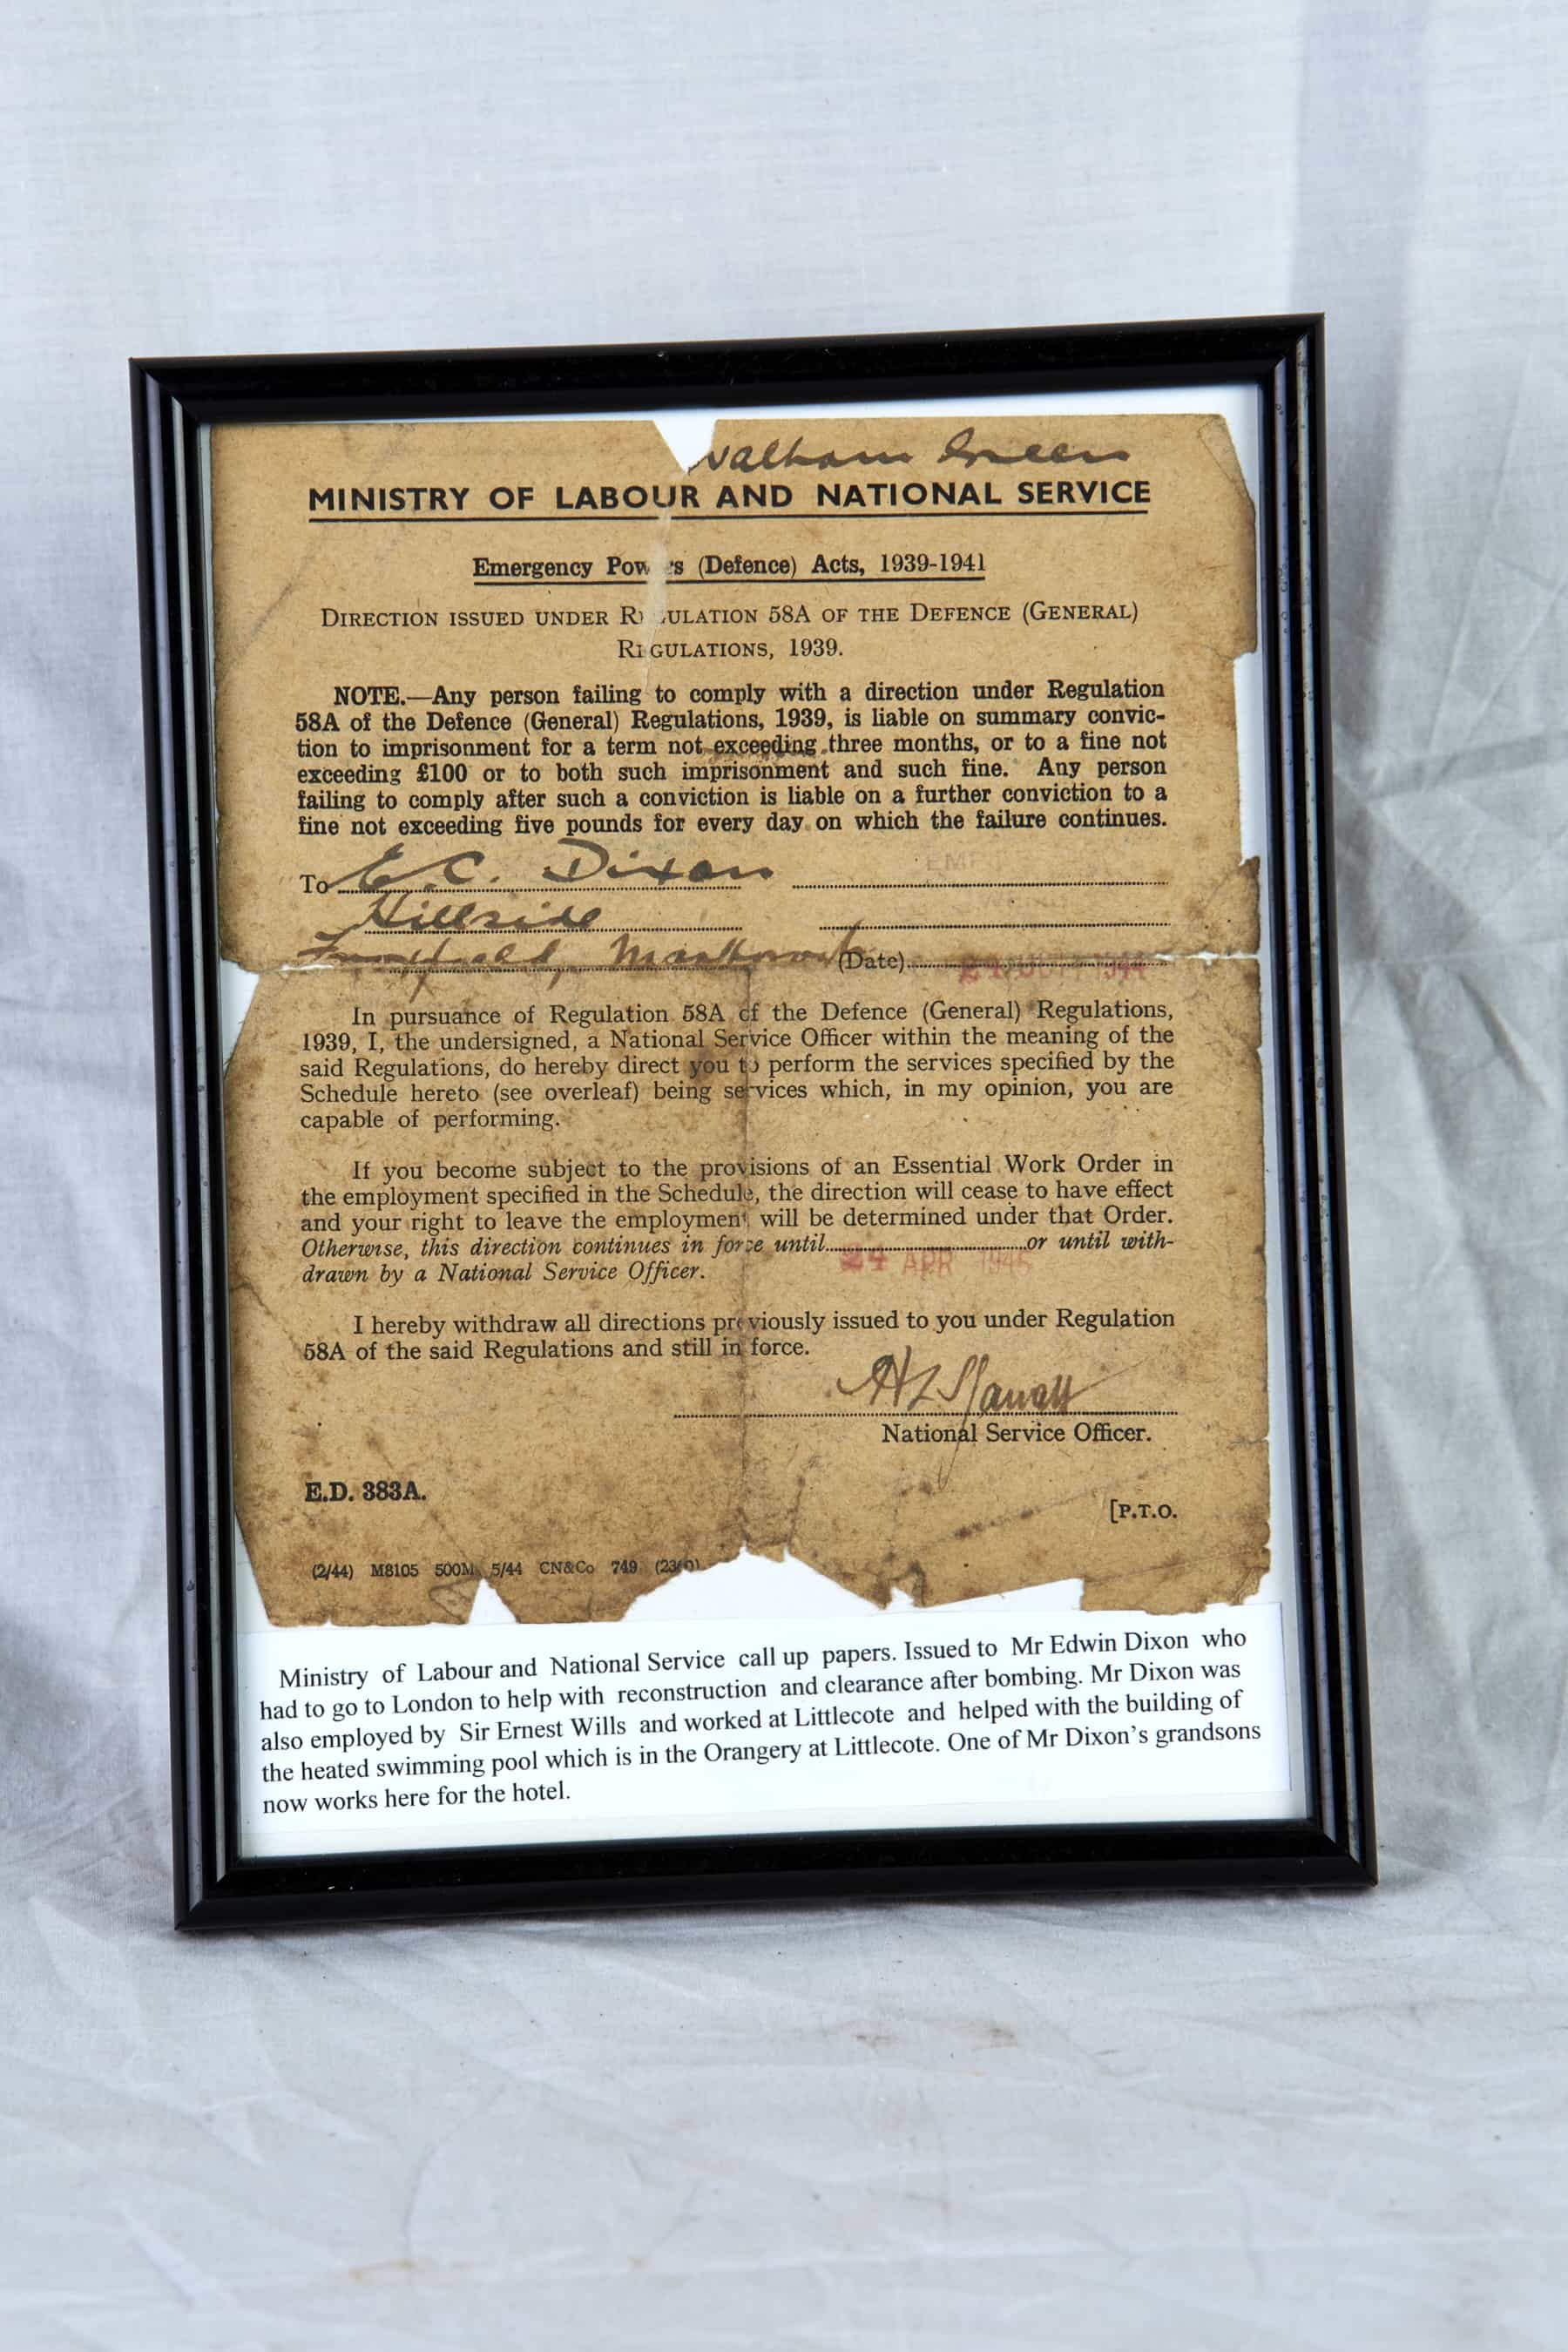 Walham Green
MINISTRY OF LABOUR AND NATIONAL SERVICE
Emergency Pow 's (Defence) Acts, 1939-1941
DIRECTION ISSUED UNDER REGULATION 58A OF THE DEFENCE (GENERAL)
REGULATIONS, 1939.
NOTE.—Any person failing to comply with a direction under Regulation
58A of the Defence (General) Regulations, 1939, is liable on summary convic-
tion to imprisonment for a term not exceeding three months, or to a fine not
exceeding £100 or to both such imprisonment and such fine. Any person
failing to comply after such a conviction is liable on a further conviction to a
fine not exceeding five pounds for every day on which the failure continues.
To E.C. Dixon
Hillside
(Date)
In pursuance of Regulation 58A of the Defence (General) Regulations,
1939, I, the undersigned, a National Service Officer within the meaning of the
said Regulations, do hereby direct you to perform the services specified by the
Schedule hereto (see overleaf) being services which, in my opinion, you are
capable of performing.
If you become subject to the provisions of an Essential Work Order in
the employment specified in the Schedule, the direction will cease to have effect
and your right to leave the employment will be determined under that Order.
Otherwise, this direction continues in force until 24 APR 1945 or until with-
drawn by a National Service Officer.
I hereby withdraw all directions previously issued to you under Regulation
58A of the said Regulations and still in force.
National Service Officer.
E.D. 383A.
[P.T.O.
(2/44) M8105 500M 5/44 CN&Co 749
Ministry of Labour and National Service call up papers. Issued to Mr Edwin Dixon who
had to go to London to help with reconstruction and clearance after bombing. Mr Dixon was
also employed by Sir Ernest Wills and worked at Littlecote and helped with the building of
the heated swimming pool which is in the Orangery at Littlecote. One of Mr Dixon's grandsons
now works here for the hotel.